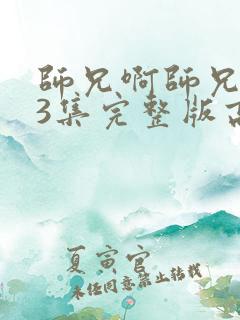 師兄啊師兄
3集完整版高
夏寅官
未经同意禁止转载